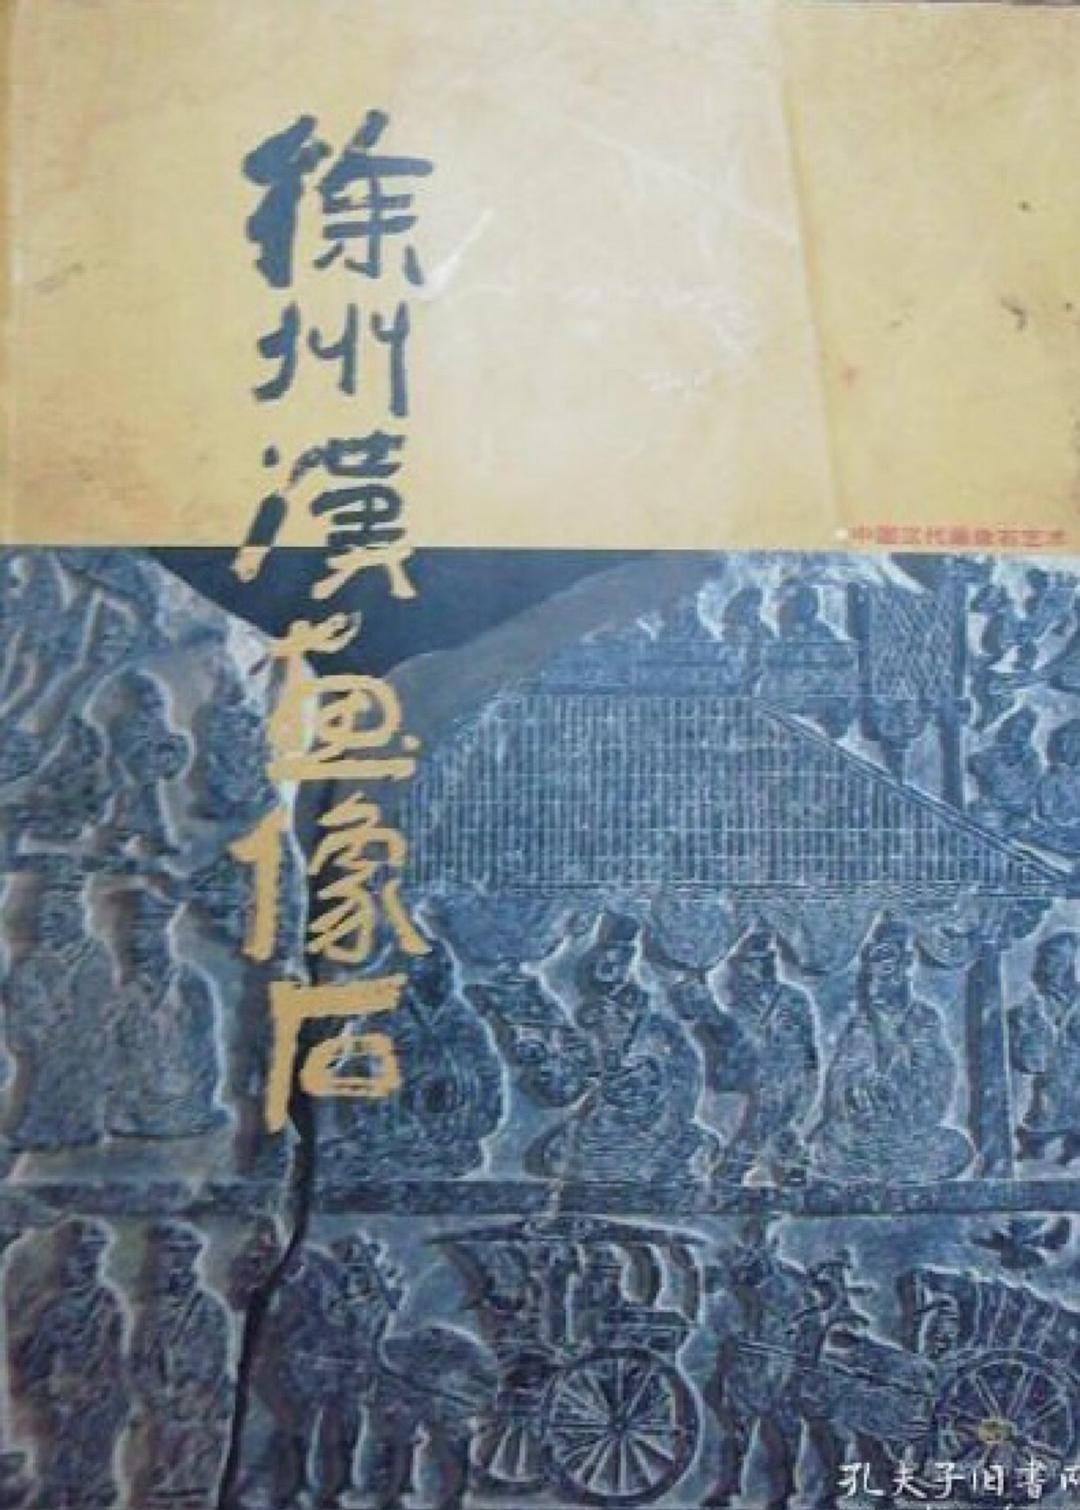 徐州漢画像石
中国汉代画像石艺术
孔夫子旧书网